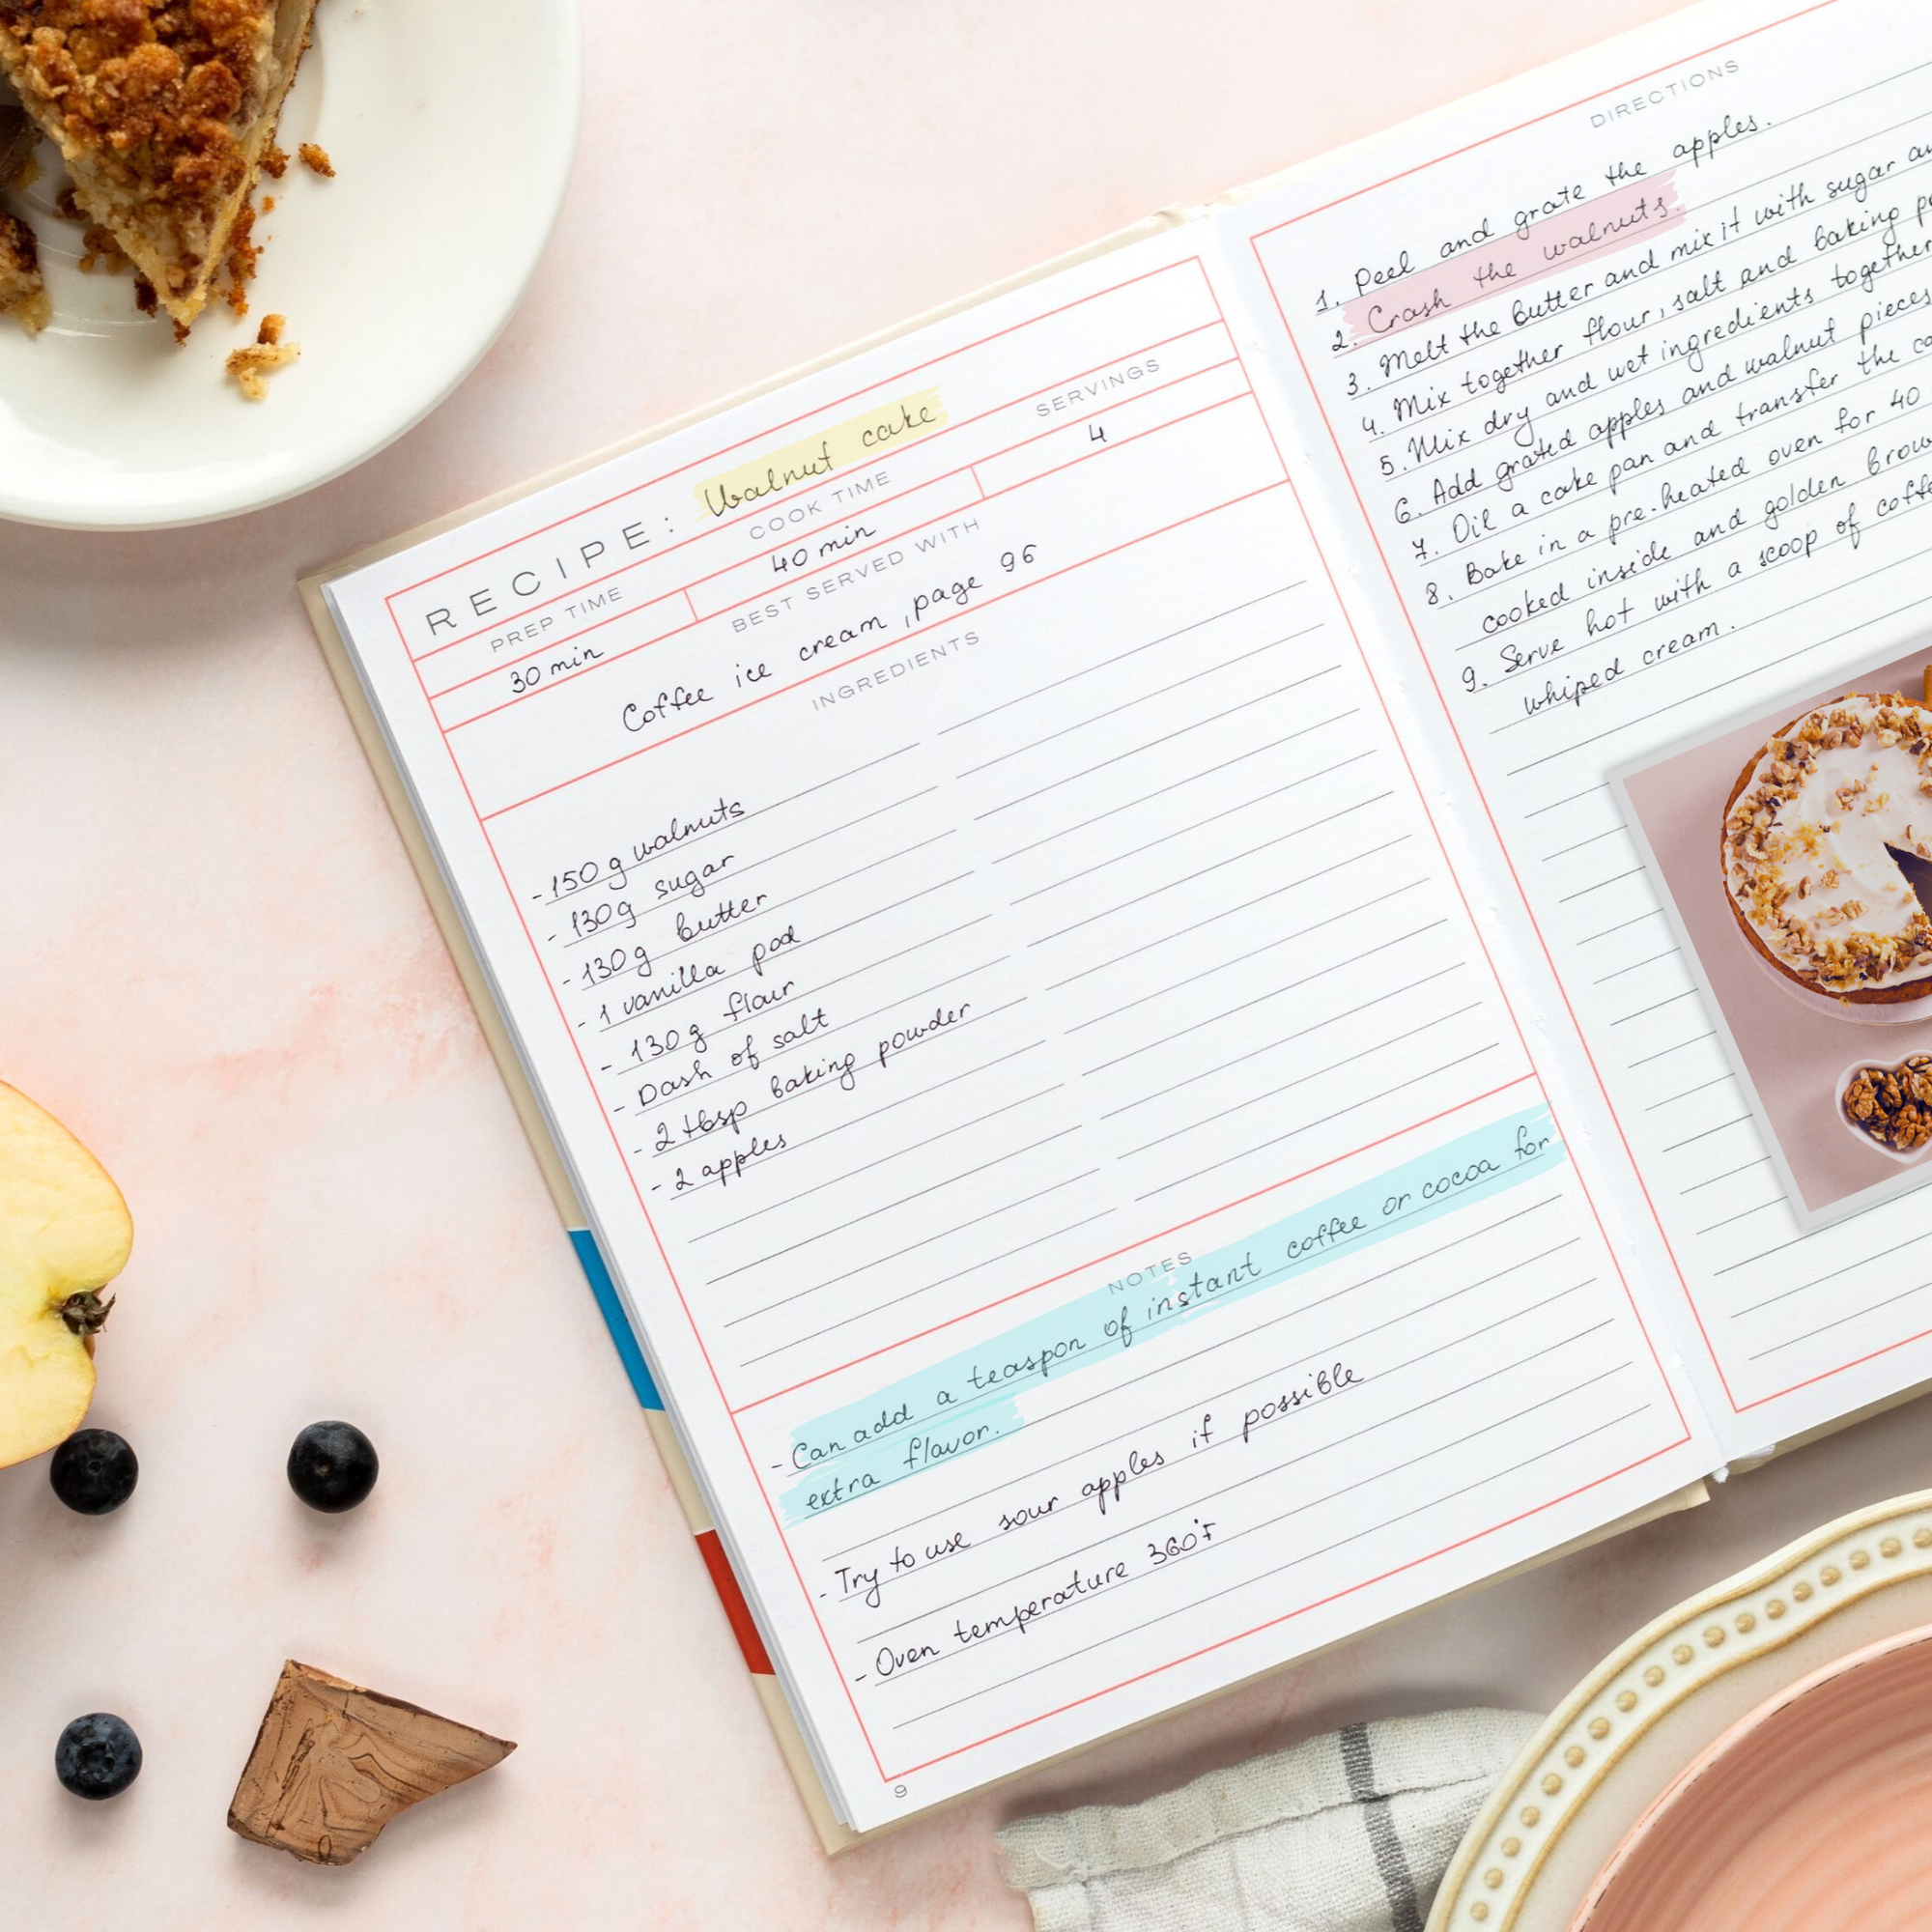 RECIPE: Walnut cake
PREP TIME COOK TIME SERVINGS
30 min 40 min 4
BEST SERVED WITH
Coffee ice cream, page 96
INGREDIENTS
- 150 g walnuts
- 130g sugar
- 130g butter
- 1 vanilla pod
- 130g flour
- Dash of salt
- 2 tbsp baking powder
- 2 apples
NOTES
- Can add a teaspon of instant coffee or cocoa for
extra flavor.
- Try to use sour apples if possible
- Oven temperature 360°F
9
DIRECTIONS
1. Peel and grate the apples.
2. Crash the walnuts.
3. Melt the butter and mix it with sugar
4. Mix together flour, salt and baking
5. Mix dry and wet ingredients together
6. Add grated apples and walnut pieces
7. Oil a cake pan and transfer the
8. Bake in a pre-heated oven for 40
cooked inside and golden
9. Serve hot with a scoop of
whiped cream.